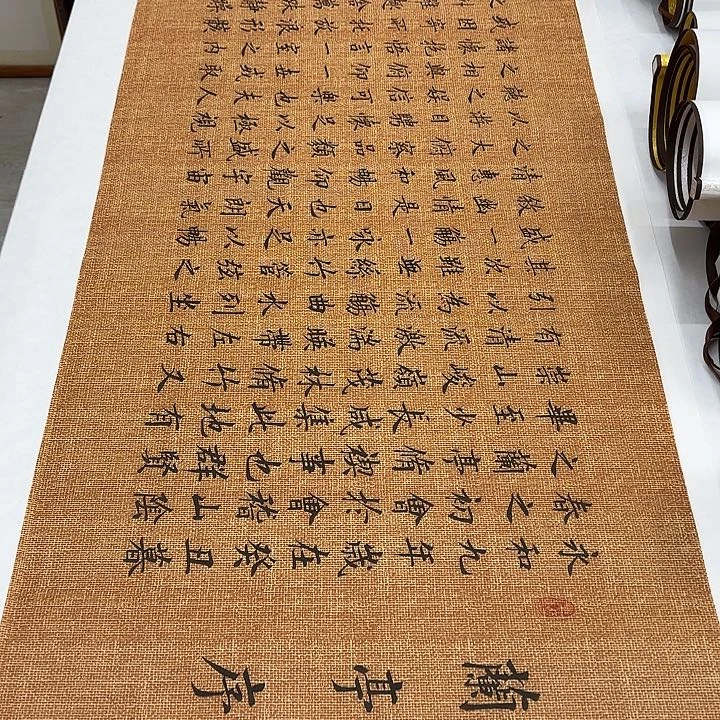 蘭亭序
永和九年歲在癸丑暮
春之初會於會稽山陰
之蘭亭脩禊事也群賢
畢至少長咸集此地有
崇山峻嶺茂林脩竹又
有清流激湍暎帶左右
引以為流觴曲水列坐
其次雖無絲竹管弦之
盛一觴一詠亦足以暢
敘幽情是日也天朗氣
清惠風和暢仰觀宇宙
之大俯察品類之盛所
以遊目騁懷足以極視
聽之娛信可樂也夫人
之相與俯仰一世或取
諸懷抱悟言一室之內
或因寄所託放浪形骸